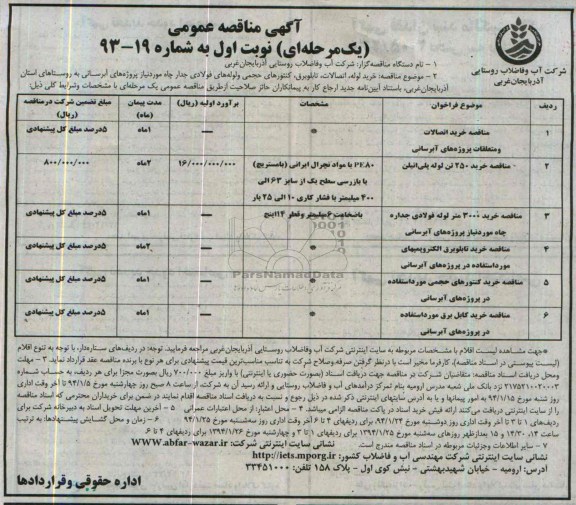 آگهی مناقصه عمومی
(یک‌مرحله‌ای) نوبت اول به شماره ۱۹-۹۳
شرکت آب وفاضلاب روستایی
آذربایجان‌غربی
۱ - نام دستگاه مناقصه‌گزار: شرکت آب وفاضلاب روستایی آذربایجان‌غربی
۲ - موضوع مناقصه: خرید لوله، اتصالات، تابلوبرق، کنتورهای حجمی ولوله‌های فولادی جدار چاه موردنیاز پروژه‌های آبرسانی به روستاهای استان
آذربایجان‌غربی، باستناد آیین‌نامه جدید ارجاع کار به پیمانکاران حائز صلاحیت ازطریق مناقصه عمومی یک مرحله‌ای با مشخصات وشرایط کلی ذیل:
ردیف موضوع فراخوان مشخصات برآورد اولیه (ریال) مدت پیمان (ماه) مبلغ تضمین شرکت درمناقصه (ریال)
۱ مناقصه خرید اتصالات ومتعلقات پروژه‌های آبرسانی * — ۱ماه ۵درصد مبلغ کل پیشنهادی
۲ مناقصه خرید ۲۵۰ تن لوله پلی‌اتیلن PE۸۰ با مواد نچرال ایرانی (بامستربچ) با بازرسی سطح یک از سایز ۶۳ الی ۴۰۰ میلیمتر با فشار کاری ۱۰ الی ۲۵ بار ۱۶/۰۰۰/۰۰۰/۰۰۰ ۲ماه ۸۰۰/۰۰۰/۰۰۰
۳ مناقصه خرید ۳۰۰۰ متر لوله فولادی جداره چاه موردنیاز پروژه‌های آبرسانی باضخامت ۶میلیمتر وقطر ۱۴اینچ — ۱ماه ۵درصد مبلغ کل پیشنهادی
۴ مناقصه خرید تابلوبرق الکتروپمپهای مورداستفاده در پروژه‌های آبرسانی * — ۲ماه ۵درصد مبلغ کل پیشنهادی
۵ مناقصه خرید کنتورهای حجمی مورداستفاده در پروژه‌های آبرسانی * — ۱ماه ۵درصد مبلغ کل پیشنهادی
۶ مناقصه خرید کابل برق مورداستفاده در پروژه‌های آبرسانی * — ۱ماه ۵درصد مبلغ کل پیشنهادی
ParsNamadData
*جهت مشاهده لیست اقلام با مشخصات مربوطه به سایت اینترنتی شرکت آب وفاضلاب روستایی آذربایجان‌غربی مراجعه فرمایید. توجه: در ردیف‌های ستاره‌دار، با توجه به تنوع اقلام
(لیست پیوستی در اسناد مناقصه)، کارفرما مخیر است با درنظر گرفتن صرفه‌وصلاح شرکت به تناسب مناسب‌ترین قیمت پیشنهادی برای هر نوع با برنده مناقصه عقد قرارداد نماید. ۳ - مهلت
ومحل دریافت اسناد مناقصه: متقاضیان شرکت در مناقصه جهت دریافت اسناد (بصورت حضوری یا اینترنتی) با واریز مبلغ ۷۰۰/۰۰۰ ریال بصورت مجزا برای هر ردیف به حساب شماره
۲۱۷۵۲۱۱۰۰۲۰۰۲ نزد بانک ملی شعبه مدرس ارومیه بنام تمرکز درآمدهای آب و فاضلاب روستایی و ارائه رسید آن به شرکت، از ساعت ۸ صبح روز چهارشنبه مورخ ۹۴/۱/۵ تا آخر وقت اداری
روز شنبه مورخ ۹۴/۱/۱۵ به امور پیمانها و یا به آدرس سایتهای اینترنتی ذکر شده در ذیل رجوع و نسبت به دریافت اسناد مناقصه اقدام نمایند در ضمن برای خریداران محترمی که اسناد مناقصه
را از سایت اینترنتی دریافت می‌کنند ارائه فیش خرید اسناد در پاکت مناقصه الزامی میباشد. ۴ - محل اعتبار: از محل اعتبارات عمرانی ۵ - آخرین مهلت تحویل اسناد به دبیرخانه شرکت برای
ردیف‌های ۱ تا ۳ تا آخر وقت اداری روز دوشنبه مورخ ۹۴/۱/۲۴ برای ردیفهای ۴ تا ۶ آخر وقت اداری روز سه‌شنبه مورخ ۹۴/۱/۲۵ ۶ - زمان و محل گشایش پیشنهادها: به ترتیب
ساعت ۱۴، ۱۴/۳۰ و ۱۵ بعدازظهر روزهای سه‌شنبه مورخ ۱۳۹۴/۱/۲۵ برای ردیفهای ۱ تا ۳ و چهارشنبه مورخ ۱۳۹۴/۱/۲۶ برای ردیفهای ۴ تا ۶.
۷ - سایر اطلاعات وجزئیات مربوطه در اسناد مناقصه مندرج است. نشانی سایت اینترنتی شرکت: WWW.abfar-wazar.ir
نشانی سایت اینترنتی شرکت مهندسی آب و فاضلاب کشور: http://iets.mporg.ir
آدرس: ارومیه - خیابان شهیدبهشتی - نبش کوی اول - پلاک ۱۵۸ تلفن: ۳۳۴۵۱۰۰۰
اداره حقوقی وقراردادها